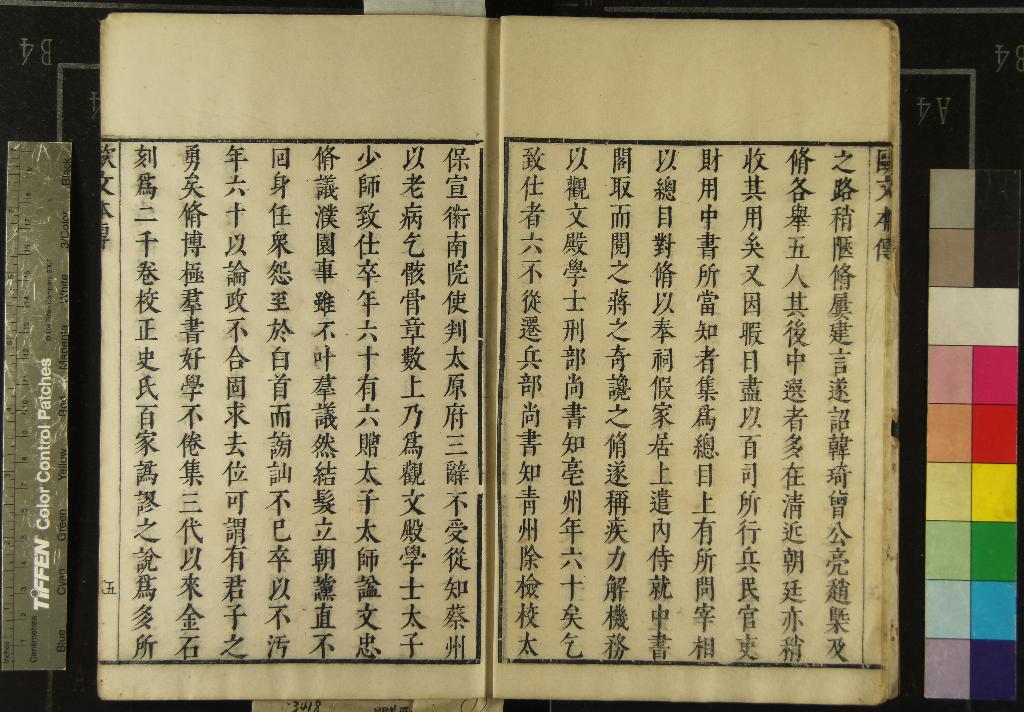 歐文本傳
之路稍壓脩屢建言遂詔韓琦曾公亮趙槩及
脩各舉五人其後中選者多在清近朝廷亦稍
收其用矣又因暇日盡以百司所行兵民官吏
財用中書所當知者集爲總目上有所問宰相
以總目對脩以奉祠假家居上遣內侍就中書
閣取而閱之蔣之奇讒之脩遂稱疾力解機務
以觀文殿學士刑部尚書知亳州年六十矣乞
致仕者六不從遷兵部尚書知青州除檢校太
保宣衛南院使判太原府三辭不受從知蔡州
以老病乞骸骨章數上乃爲觀文殿學士太子
少師致仕卒年六十有六贈太子太師謚文忠
脩議濮園事雖不叶羣議然結髮立朝讜直不
回身任衆怨至於白首而謗訕不已卒以不汚
年六十以論政不合固求去位可謂有君子之
勇矣脩博極羣書好學不倦集三代以來金石
刻爲二千卷校正史氏百家譌謬之說爲多所
歐文本傳
五
B4
A4
B4
A4
TIFFEN Color Control Patches
© The Tiffen Company, 2007
Inches
Centimetres
Blue
Cyan
Green
Yellow
Red
Magenta
White
3/Color
Black
3418